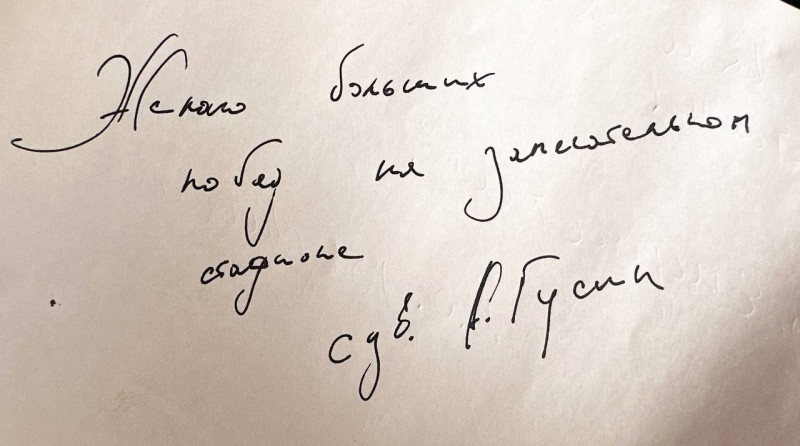 Желаю больших
побед на замечательном
стадионе
с ув. А. Гусин